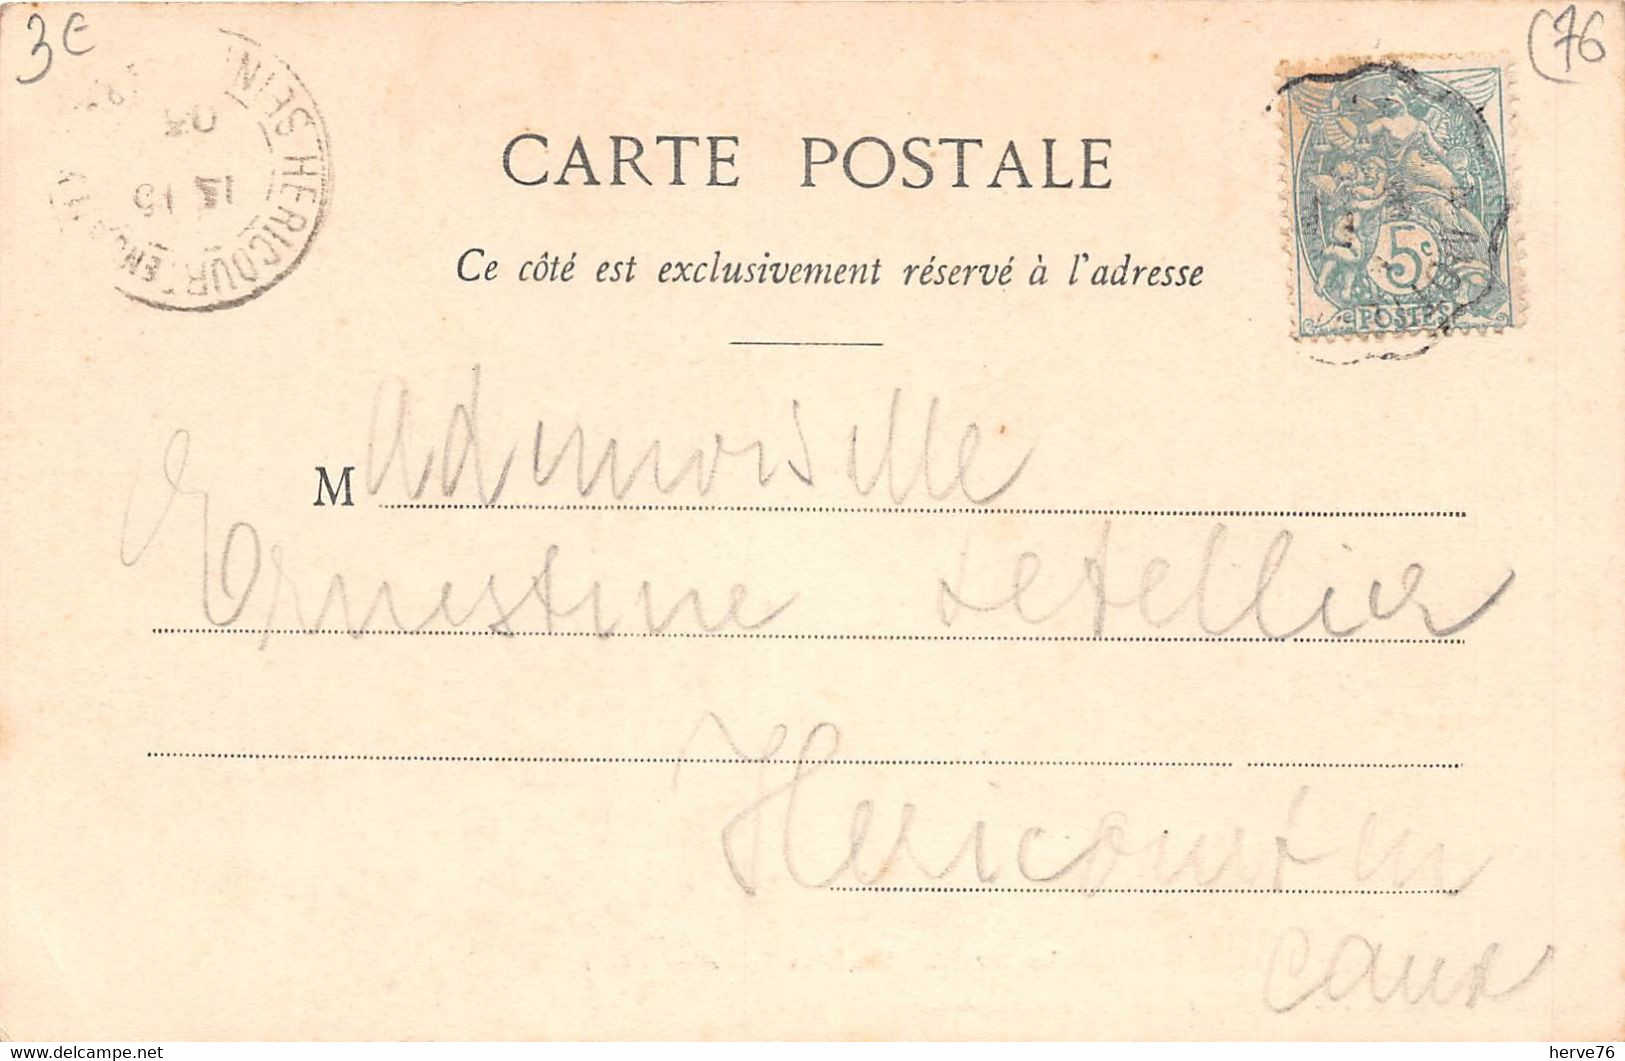 3€
(76
HERICOURT EN CAUX
CARTE POSTALE
Ce côté est exclusivement réservé à l'adresse
5c
POSTES
Madmoiselle
Ernestine Letellier
Hericourt en
caux
www.delcampe.net
herve76